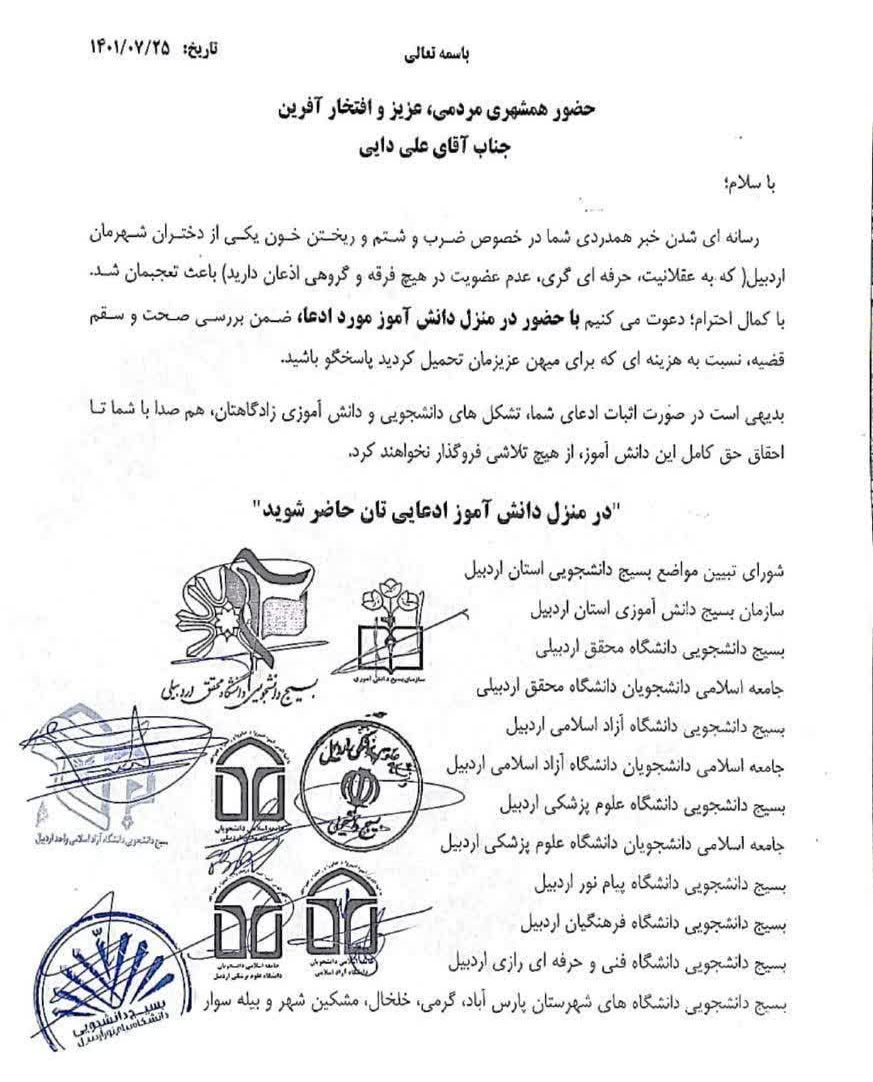 باسمه تعالی
تاریخ: ۱۴۰۱/۰۷/۲۵
حضور همشهری مردمی، عزیز و افتخار آفرین
جناب آقای علی دایی
با سلام؛
رسانه ای شدن خبر همدردی شما در خصوص ضرب و شتم و ریختن خون یکی از دختران شهرمان
اردبیل( که به عقلانیت، حرفه ای گری، عدم عضویت در هیچ فرقه و گروهی اذعان دارید) باعث تعجبمان شد.
با کمال احترام؛ دعوت می کنیم با حضور در منزل دانش آموز مورد ادعا، ضمن بررسی صحت و سقم
قضیه، نسبت به هزینه ای که برای میهن عزیزمان تحمیل کردید پاسخگو باشید.
بدیهی است در صورت اثبات ادعای شما، تشکل های دانشجویی و دانش آموزی زادگاهتان، هم صدا با شما تا
احقاق حق کامل این دانش آموز، از هیچ تلاشی فروگذار نخواهند کرد.
"در منزل دانش آموز ادعایی تان حاضر شوید"
شورای تبیین مواضع بسیج دانشجویی استان اردبیل
سازمان بسیج دانش آموزی استان اردبیل
بسیج دانشجویی دانشگاه محقق اردبیلی
جامعه اسلامی دانشجویان دانشگاه محقق اردبیلی
بسیج دانشجویی دانشگاه آزاد اسلامی اردبیل
جامعه اسلامی دانشجویان دانشگاه آزاد اسلامی اردبیل
بسیج دانشجویی دانشگاه علوم پزشکی اردبیل
جامعه اسلامی دانشجویان دانشگاه علوم پزشکی اردبیل
بسیج دانشجویی دانشگاه پیام نور اردبیل
بسیج دانشجویی دانشگاه فرهنگیان اردبیل
بسیج دانشجویی دانشگاه فنی و حرفه ای رازی اردبیل
بسیج دانشجویی دانشگاه های شهرستان پارس آباد، گرمی، خلخال، مشکین شهر و بیله سوار
سازمان بسیج دانش آموزی
بسیج دانشجویی دانشگاه محقق اردبیلی
بسیج دانشجویی دانشگاه آزاد اسلامی واحد اردبیل
جامعه اسلامی دانشجویان
علوم پزشکی اردبیل
بسیج دانشجویی
جامعه اسلامی دانشجویان
دانشگاه علوم پزشکی اردبیل
جامعه اسلامی دانشجویان
دانشگاه آزاد اسلامی
بسیج دانشجویی
دانشگاه پیام نور اردبیل